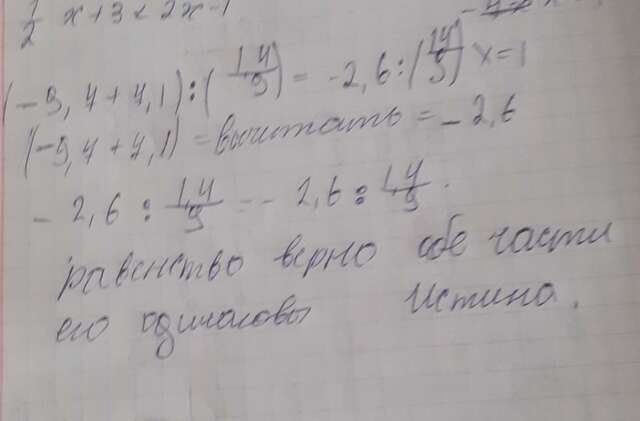 1/2 x + 3 < 2x - 1
(-9,4 + 4,1) : (1,4/9) = -2,6 : (14/9) x = 1
(-9,4 + 4,1) = вычитать = -2,6
- 2,6 : 1,4/9 = - 2,6 : 1,4/9.
равенство верно обе части
его одинаковы Истина.